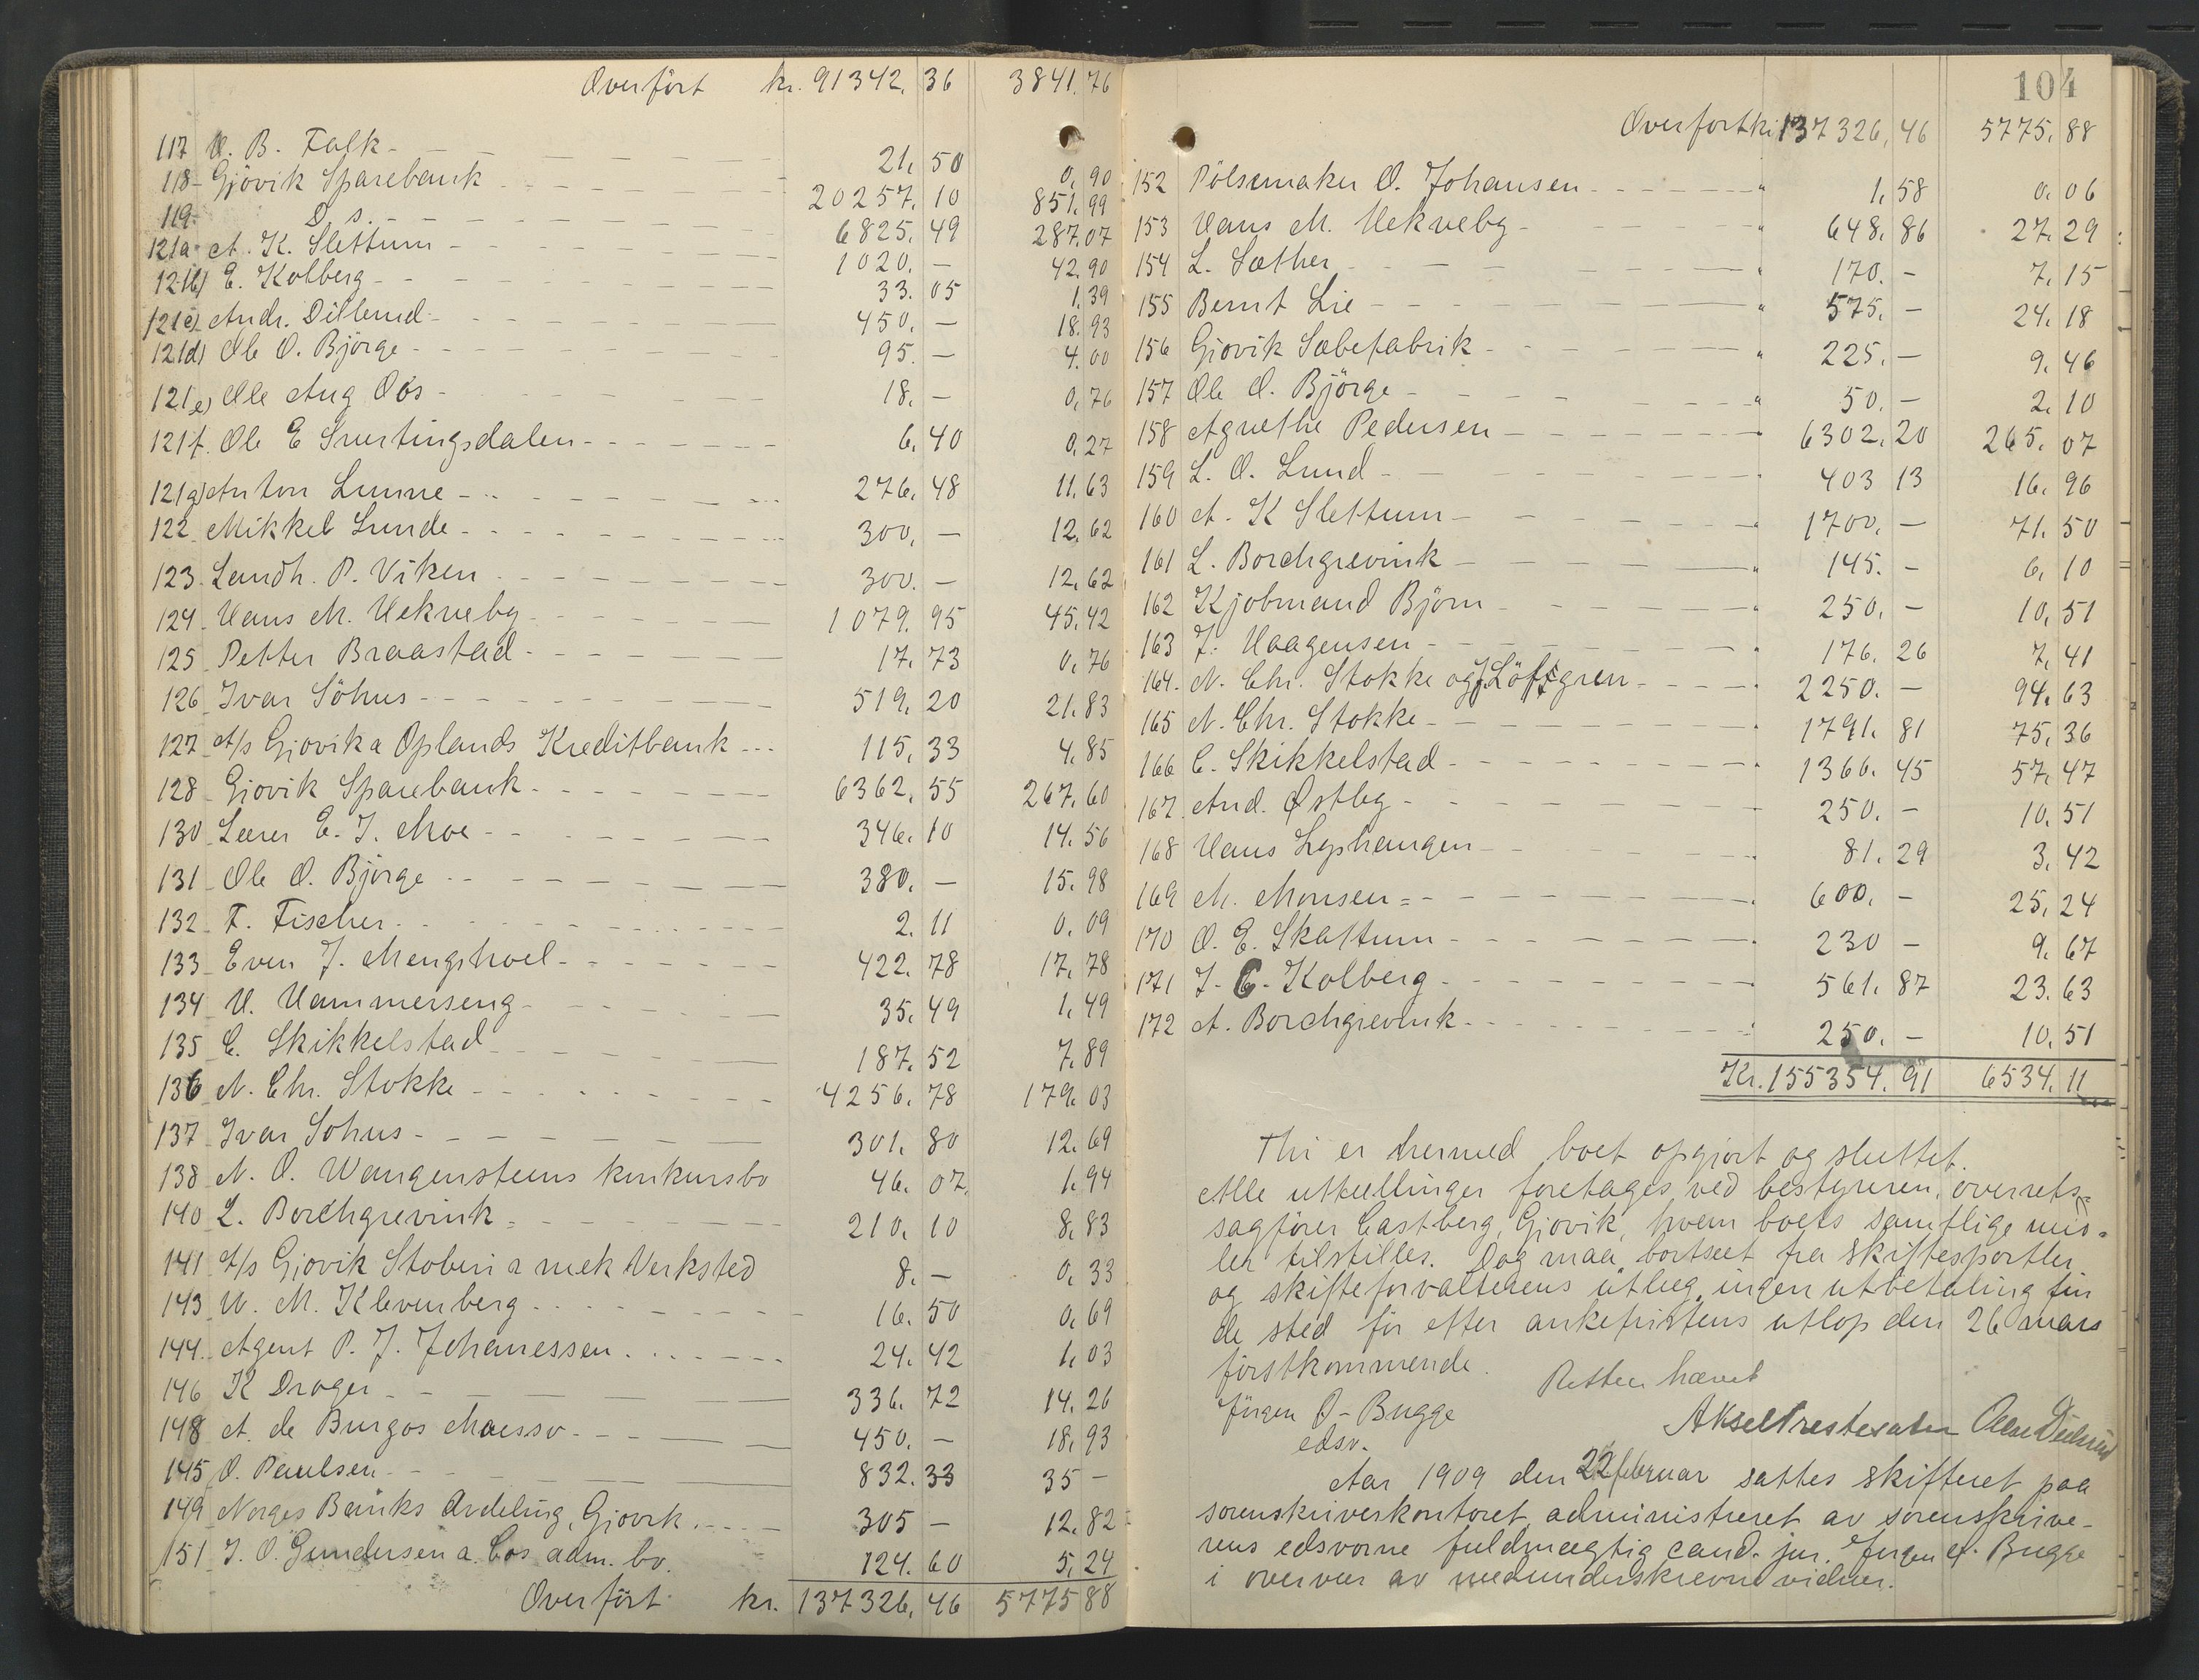 Overført kr. 91342.36 3841.76
117 O. B. Falk - 21.50 0.90
118 - Gjövik Sparebank - 20257.10 851.99
119. D. s. - 6825.49 287.07
121a A. K. Slettum - 1020. - 42.90
121b) E. Kolberg - 33.05 1.39
121c) Andr. Dillerud - 450. - 18.93
121d) Ole O. Björge - 95. - 4.00
121e) Ole Aug Oös - 18. - 0.76
121f. Ole E Snertingsdalen - 6.40 0.27
121g) Anton Lunne - 276.48 11.63
122 Mikkel Lunde - 300. - 12.62
123. Landh. P. Viken - 300. - 12.62
124. Hans M. Hekneby - 1079.95 45.42
125 Petter Braastad - 17.73 0.76
126 Ivar Söhus - 519.20 21.83
127 A/s Gjovik & Oplands Kreditbank - 115.33 4.85
128 Gjovik Sparebank - 6362.55 267.60
130 Lærer E. J. Moe - 346.10 14.56
131 Ole O. Björge - 380. - 15.98
132 F. Fischer - 2.11 0.09
133 Even J. Mengshoel - 422.78 17.78
134 H. Hammerseng - 35.49 1.49
135 C. Skikkelstad - 187.52 7.89
136 N. Chr. Stokke - 4256.78 179.03
137 Ivar Sohus - 301.80 12.69
138 N. O. Wangensteens konkursbo 46.07 1.94
140 L. Borchgrevink - 210.10 8.83
141 A/s Gjovik Stoberi & mek Verksted 8. - 0.33
143 H. M. Klevenberg - 16.50 0.69
144. Agent P. J. Johanessen - 24.42 1.03
146 K Drager - 336.72 14.26
148 A. de Burgos Maesso - 450. - 18.93
145 O. Paulsen - 832.33 35 -
149 Norges Banks Avdeling, Gjovik - 305 - 12.82
151 J. O. Gundersen & Cos adm. bo. 124.60 5.24
Overfört kr. 137326.46 5775 88
104
Overført kr 137326.46 5775.88
152 Pölsemaker O. Johansen - 1.58 0.06
153 Hans M. Hekneby - 648.86 27.29
154 L. Sæther - 170. - 7.15
155 Bernt Lie - 575. - 24.18
156 Gjovik Sæbefabrik - 225. - 9.46
157 Ole O. Björge - 50. - 2.10
158 Agnethe Pedersen - 6302.20 265.07
159 L. O. Lund - 403 13 16.96
160 A. K Slettum - 1700. - 71.50
161 L. Borchgrevink - 145. - 6.10
162 Kjobmand Bjørn - 250. - 10.51
163 J. Haagensen - 176.26 7.41
164. N. Chr. Stokke og J Löfsgren - 2250. - 94.63
165 N. Chr. Stokke - 1791.81 75.36
166 C. Skikkelstad - 1366.45 57.47
167. And. Østby - 250. - 10.51
168 Hans Lyshaugen - 81.29 3.42
169 M. Monsen - 600. - 25.24
170 O. E. Skattum - 230 - 9.67
171 J. C. Kolberg - 561.87 23.63
172 A. Borchgrevink - 250. - 10.51
Kr. 155354.91 6534.11
Thi er hermed boet opgjort og sluttet.
Alle utbetalinger foretages ved bestyreren, overrets-
sagfører Castberg, Gjovik, hvem boets samtlige mid-
ler tilstilles. Dog maa, bortseet fra skiftesportler
og skifteforvalterens utlæg, ingen utbetaling fin
de sted før efter ankefristens utlop den 26 mars
förstkommende.
Retten hævet
Jörgen O. Bugge
edsv.
Aar 1909 den 22 februar sattes skifteret paa
sorenskriverkontoret administreret av sorenskrive-
rens edsvorne fuldmægtig cand. jur. Jørgen O. Bugge
i overvær av medunderskrevne vidner.